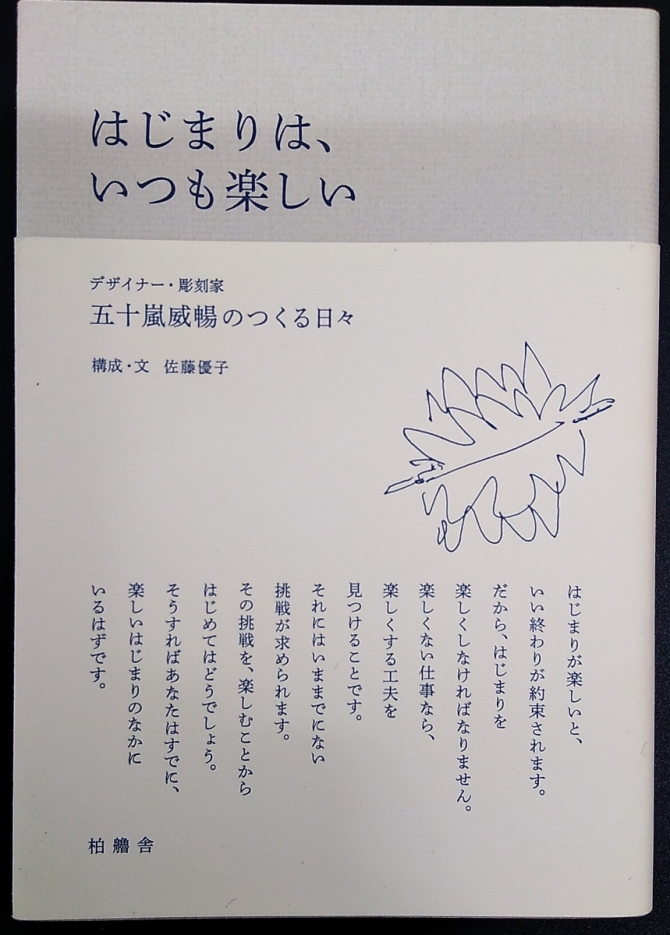 はじまりは、
いつも楽しい
デザイナー・彫刻家
五十嵐威暢のつくる日々
構成・文 佐藤優子
はじまりが楽しいと、
いい終わりが約束されます。
だから、はじまりを
楽しくしなければなりません。
楽しくない仕事なら、
楽しくする工夫を
見つけることです。
それにはいままでにない
挑戦が求められます。
その挑戦を、楽しむことから
はじめてはどうでしょう。
そうすればあなたはすでに、
楽しいはじまりのなかに
いるはずです。
柏艪舎